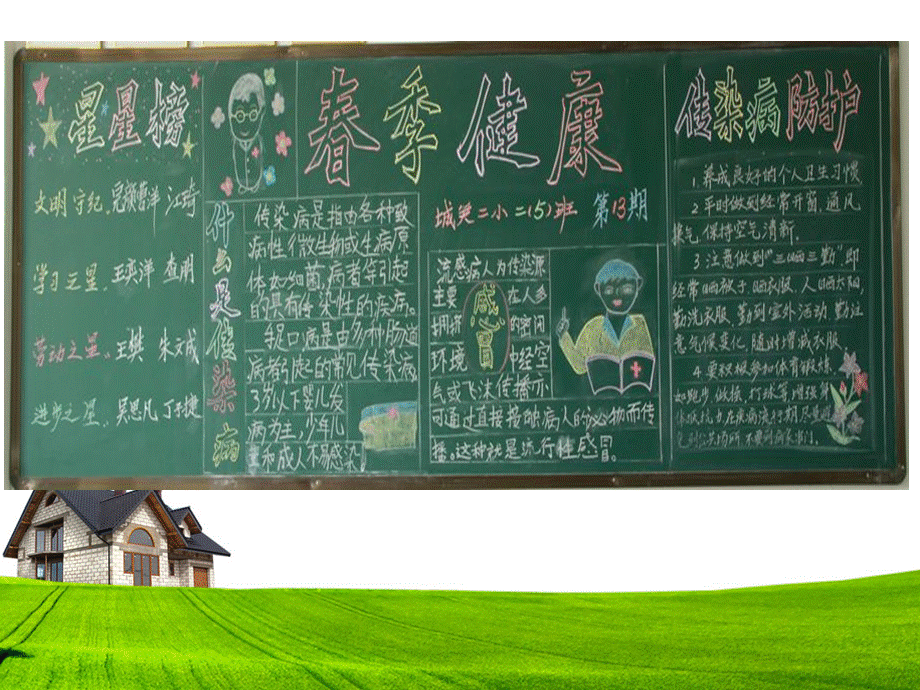 星星榜
文明守纪 江琦
学习之星 王奕洋 查明
劳动之星 王樊 朱文成
进步之星 吴思凡 丁子捷
什么是传染病
春季健康
传染病是指由各种致
病性(微生物或生病原
体如细菌,病者等引起
的具有传染性的疾病。
手足口病是由多种肠道
病者引起的常见传染病,
3岁以下婴儿发
病为主,少年儿
童和成人不易感染
城关二小二(5)班 第13期
流感病人为传染源
主要 在人多
拥挤 的空间
环境 中经空
感冒
气或飞沫传播亦
可通过直接接触病人的泌物而传
播。这种就是流行性感冒。
传染病防护
1.养成良好的个人卫生习惯
2.平时做到经常开窗,通风
换气,保持空气清新。
3.注意做到“三晒三勤”即
经常晒被子晒衣服,人晒太阳,
勤洗衣服、勤到室外活动,勤注
意气候变化,随时增减衣服。
4.要积极参加体育锻炼,
如跑步、做操、打球等,增强身
体抵抗力,在疾病流行期尽